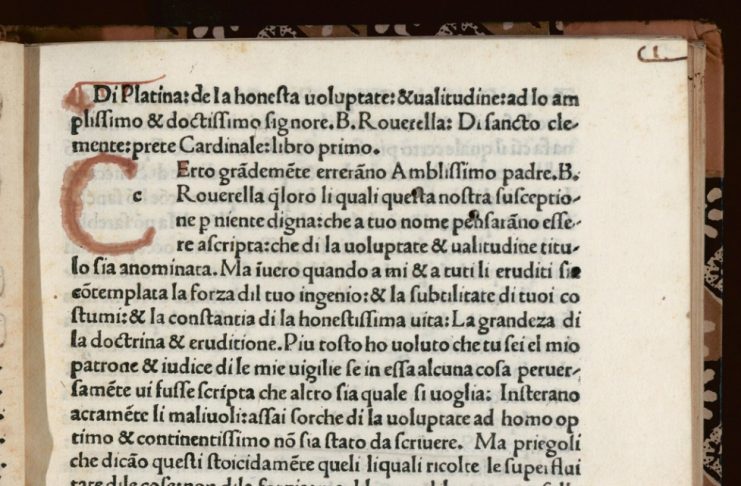 CI.
Di Platina: de la honesta uoluptate: & ualitudine: ad lo am
plissimo & doctissimo signore. B. Rouerella: Di sancto cle-
mente: prete Cardinale: libro primo.
CErto grãdemẽte errerãno Amblissimo padre. B.
c Rouerella q̃loro li quali questa nostra susceptio-
ne p niente digna: che a tuo nome pensarãno esse-
re ascripta: che di la uoluptate & ualitudine titu-
lo sia anominata. Ma ĩuero quando a mi & a tuti li eruditi sie
cõtemplata la forza dil tuo ingenio: & la subtilitate di tuoi co
stumi: & la constantia di la honestissima uita: La grandeza di
la doctrina & eruditione. Piu tosto ho uoluto che tu sei el mio
patrone & iudice di le mie uigilie se in essa alcuna cosa peruer-
samẽte ui fusse scripta che altro sia quale si uoglia: Insterano
acramẽte li maliuoli: assai sorche di la uoluptate ad homo op
timo & continentissimo nõ sia stato da scriuere. Ma priegoli
che dicão questi stoicidamẽte queli li quali ricolte le superflui